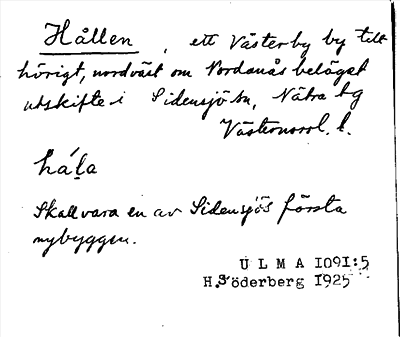 Hållen, ett Västerby by till-
hörigt, nordväst om Nordanås beläget
utskifte i Sidensjö sn, Nätra tg
Västernorrl. l.
håla
Skall vara en av Sidensjös första
nybyggen.
U L M A 1091:5
H.Söderberg 1925